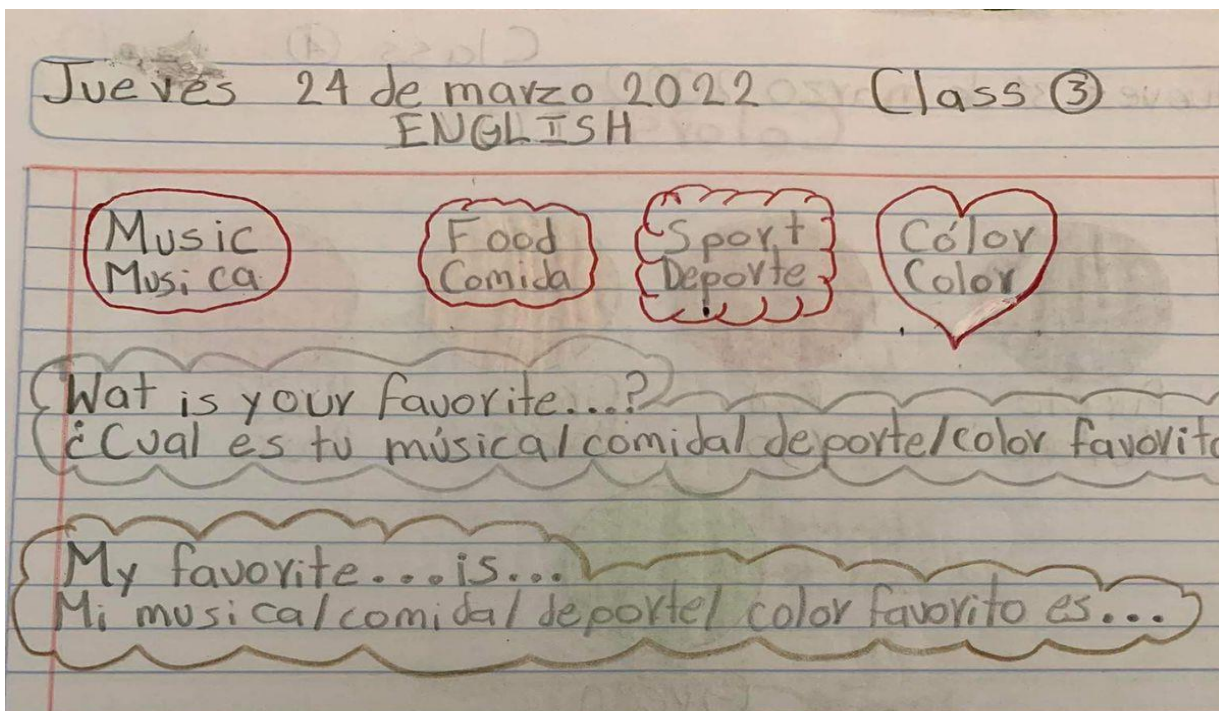 Jueves 24 de marzo 2022 Class ③
ENGLISH
Music Food Sport Cólor
Musica Comida Deporte Color
Wat is your favorite...?
¿Cual es tu música/comida/deporte/color favorito
My favorite...is...
Mi musica/comida/deporte/color favorito es...